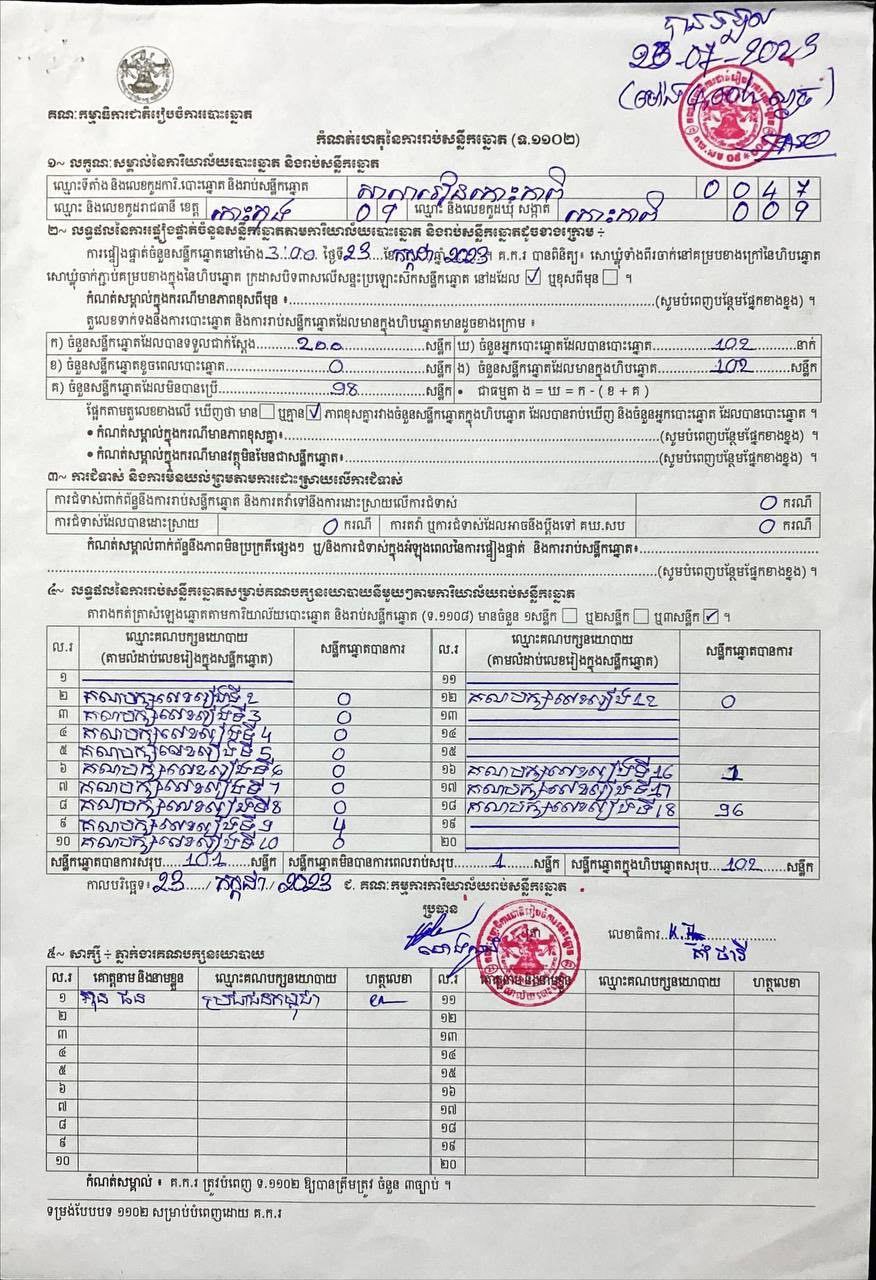 បានទទួល
23-07-2023
គណៈកម្មាធិការជាតិរៀបចំការបោះឆ្នោត
កំណត់ហេតុនៃការរាប់សន្លឹកឆ្នោត (ទ.១១០២)
១~ លក្ខណៈសម្គាល់នៃការិយាល័យបោះឆ្នោត និងរាប់សន្លឹកឆ្នោត
ឈ្មោះទីតាំង និងលេខកូដការិ.បោះឆ្នោត និងរាប់សន្លឹកឆ្នោត សាលារៀនកោះកាពិ 0 0 4 7
ឈ្មោះ និងលេខកូដរាជធានី ខេត្ត កោះកុង 09 ឈ្មោះ និងលេខកូដឃុំ សង្កាត់ កោះកាពិ 0 0 9
២~ លទ្ធផលនៃការផ្ទៀងផ្ទាត់ចំនួនសន្លឹកឆ្នោតតាមការិយាល័យបោះឆ្នោត និងរាប់សន្លឹកឆ្នោតដូចខាងក្រោម ÷
ការផ្ទៀងផ្ទាត់ចំនួនសន្លឹកឆ្នោតនៅម៉ោង 3:00 ថ្ងៃទី 23 ខែ កក្កដា ឆ្នាំ 2023 គ.ក.រ បានពិនិត្យ៖ សោឃ្លុំទាំងពីរចាក់នៅគម្របខាងក្រៅនៃហិបឆ្នោត
សោឃ្លុំចាក់ភ្ជាប់គម្របខាងក្នុងនៃហិបឆ្នោត ក្រដាសបិទពាសលើសន្ទះប្រឡោះសៀតសន្លឹកឆ្នោត នៅដដែល ☑ ឬខុសពីមុន ☐ ។
កំណត់សម្គាល់ក្នុងករណីមានភាពខុសពីមុន ៖ (សូមបំពេញបន្ថែមផ្នែកខាងខ្នង) ។
តួលេខទាក់ទងនឹងការបោះឆ្នោត និងការរាប់សន្លឹកឆ្នោតដែលមានក្នុងហិបឆ្នោតមានដូចខាងក្រោម ៖
ក) ចំនួនសន្លឹកឆ្នោតដែលបានទទួលជាក់ស្តែង 200 សន្លឹក ឃ) ចំនួនអ្នកបោះឆ្នោតដែលបានបោះឆ្នោត 102 នាក់
ខ) ចំនួនសន្លឹកឆ្នោតខូចពេលបោះឆ្នោត 0 សន្លឹក ង) ចំនួនសន្លឹកឆ្នោតដែលមានក្នុងហិបឆ្នោត 102 សន្លឹក
គ) ចំនួនសន្លឹកឆ្នោតដែលមិនបានប្រើ 98 សន្លឹក • ជាធម្មតា ង = ឃ = ក - ( ខ + គ )
ផ្អែកតាមតួលេខខាងលើ ឃើញថា មាន ☐ ឬគ្មាន ☑ ភាពខុសគ្នារវាងចំនួនសន្លឹកឆ្នោតក្នុងហិបឆ្នោត ដែលបានរាប់ឃើញ និងចំនួនអ្នកបោះឆ្នោត ដែលបានបោះឆ្នោត ។
• កំណត់សម្គាល់ក្នុងករណីមានភាពខុសគ្នា៖ (សូមបំពេញបន្ថែមផ្នែកខាងខ្នង) ។
• កំណត់សម្គាល់ក្នុងករណីមានវត្ថុមិនមែនជាសន្លឹកឆ្នោត៖ (សូមបំពេញបន្ថែមផ្នែកខាងខ្នង) ។
៣~ ការជំទាស់ និងការមិនយល់ព្រមតាមការដោះស្រាយលើការជំទាស់
ការជំទាស់ពាក់ព័ន្ធនឹងការរាប់សន្លឹកឆ្នោត និងការតវ៉ាទៅនឹងការដោះស្រាយលើការជំទាស់ 0 ករណី
ការជំទាស់ដែលបានដោះស្រាយ 0 ករណី ការតវ៉ា ឬការជំទាស់ដែលអាចនឹងប្តឹងទៅ គឃ.សប 0 ករណី
កំណត់សម្គាល់ពាក់ព័ន្ធនឹងភាពមិនប្រក្រតីផ្សេងៗ ឬ/និងការជំទាស់ក្នុងអំឡុងពេលនៃការផ្ទៀងផ្ទាត់ និងការរាប់សន្លឹកឆ្នោត៖
(សូមបំពេញបន្ថែមផ្នែកខាងខ្នង) ។
៤~ លទ្ធផលនៃការរាប់សន្លឹកឆ្នោតសម្រាប់គណបក្សនយោបាយនីមួយៗតាមការិយាល័យរាប់សន្លឹកឆ្នោត
តារាងកត់ត្រាសំឡេងឆ្នោតតាមការិយាល័យបោះឆ្នោត និងរាប់សន្លឹកឆ្នោត (ទ.១១០៨) មានចំនួន ១សន្លឹក ☐ ឬ២សន្លឹក ☐ ឬ៣សន្លឹក ☑ ។
ល.រ ឈ្មោះគណបក្សនយោបាយ (តាមលំដាប់លេខរៀងក្នុងសន្លឹកឆ្នោត) សន្លឹកឆ្នោតបានការ ល.រ ឈ្មោះគណបក្សនយោបាយ (តាមលំដាប់លេខរៀងក្នុងសន្លឹកឆ្នោត) សន្លឹកឆ្នោតបានការ
១ ១១
២ គណបក្សលេខរៀងទី 2 0 ១២ គណបក្សលេខរៀង 12 0
៣ គណបក្សលេខរៀងទី 3 0 ១៣
៤ គណបក្សលេខរៀងទី 4 0 ១៤
៥ គណបក្សលេខរៀងទី 5 0 ១៥
៦ គណបក្សលេខរៀងទី 6 0 ១៦ គណបក្សលេខរៀងទី 16 1
៧ គណបក្សលេខរៀងទី 7 0 ១៧ គណបក្សលេខរៀងទី 17
៨ គណបក្សលេខរៀងទី 8 0 ១៨ គណបក្សលេខរៀងទី 18 96
៩ គណបក្សលេខរៀងទី 9 4 ១៩
១០ គណបក្សលេខរៀងទី 10 0 ២០
សន្លឹកឆ្នោតបានការសរុប 101 សន្លឹក សន្លឹកឆ្នោតមិនបានការពេលរាប់សរុប 1 សន្លឹក សន្លឹកឆ្នោតក្នុងហិបឆ្នោតសរុប 102 សន្លឹក
កាលបរិច្ឆេទ៖ 23 / កក្កដា / 2023 ជ. គណៈកម្មការការិយាល័យរាប់សន្លឹកឆ្នោត
ប្រធាន
លេខាធិការ
៥~ សាក្សី ÷ ភ្នាក់ងារគណបក្សនយោបាយ
ល.រ គោត្តនាម និងនាមខ្លួន ឈ្មោះគណបក្សនយោបាយ ហត្ថលេខា ល.រ គោត្តនាម និងនាមខ្លួន ឈ្មោះគណបក្សនយោបាយ ហត្ថលេខា
១ ប្រជាជនកម្ពុជា ១១
២ ១២
៣ ១៣
៤ ១៤
៥ ១៥
៦ ១៦
៧ ១៧
៨ ១៨
៩ ១៩
១០ ២០
កំណត់សម្គាល់ ៖ គ.ក.រ ត្រូវបំពេញ ទ.១១០២ ឱ្យបានត្រឹមត្រូវ ចំនួន ៣ច្បាប់ ។
ទម្រង់បែបបទ ១១០២ សម្រាប់បំពេញដោយ គ.ក.រ